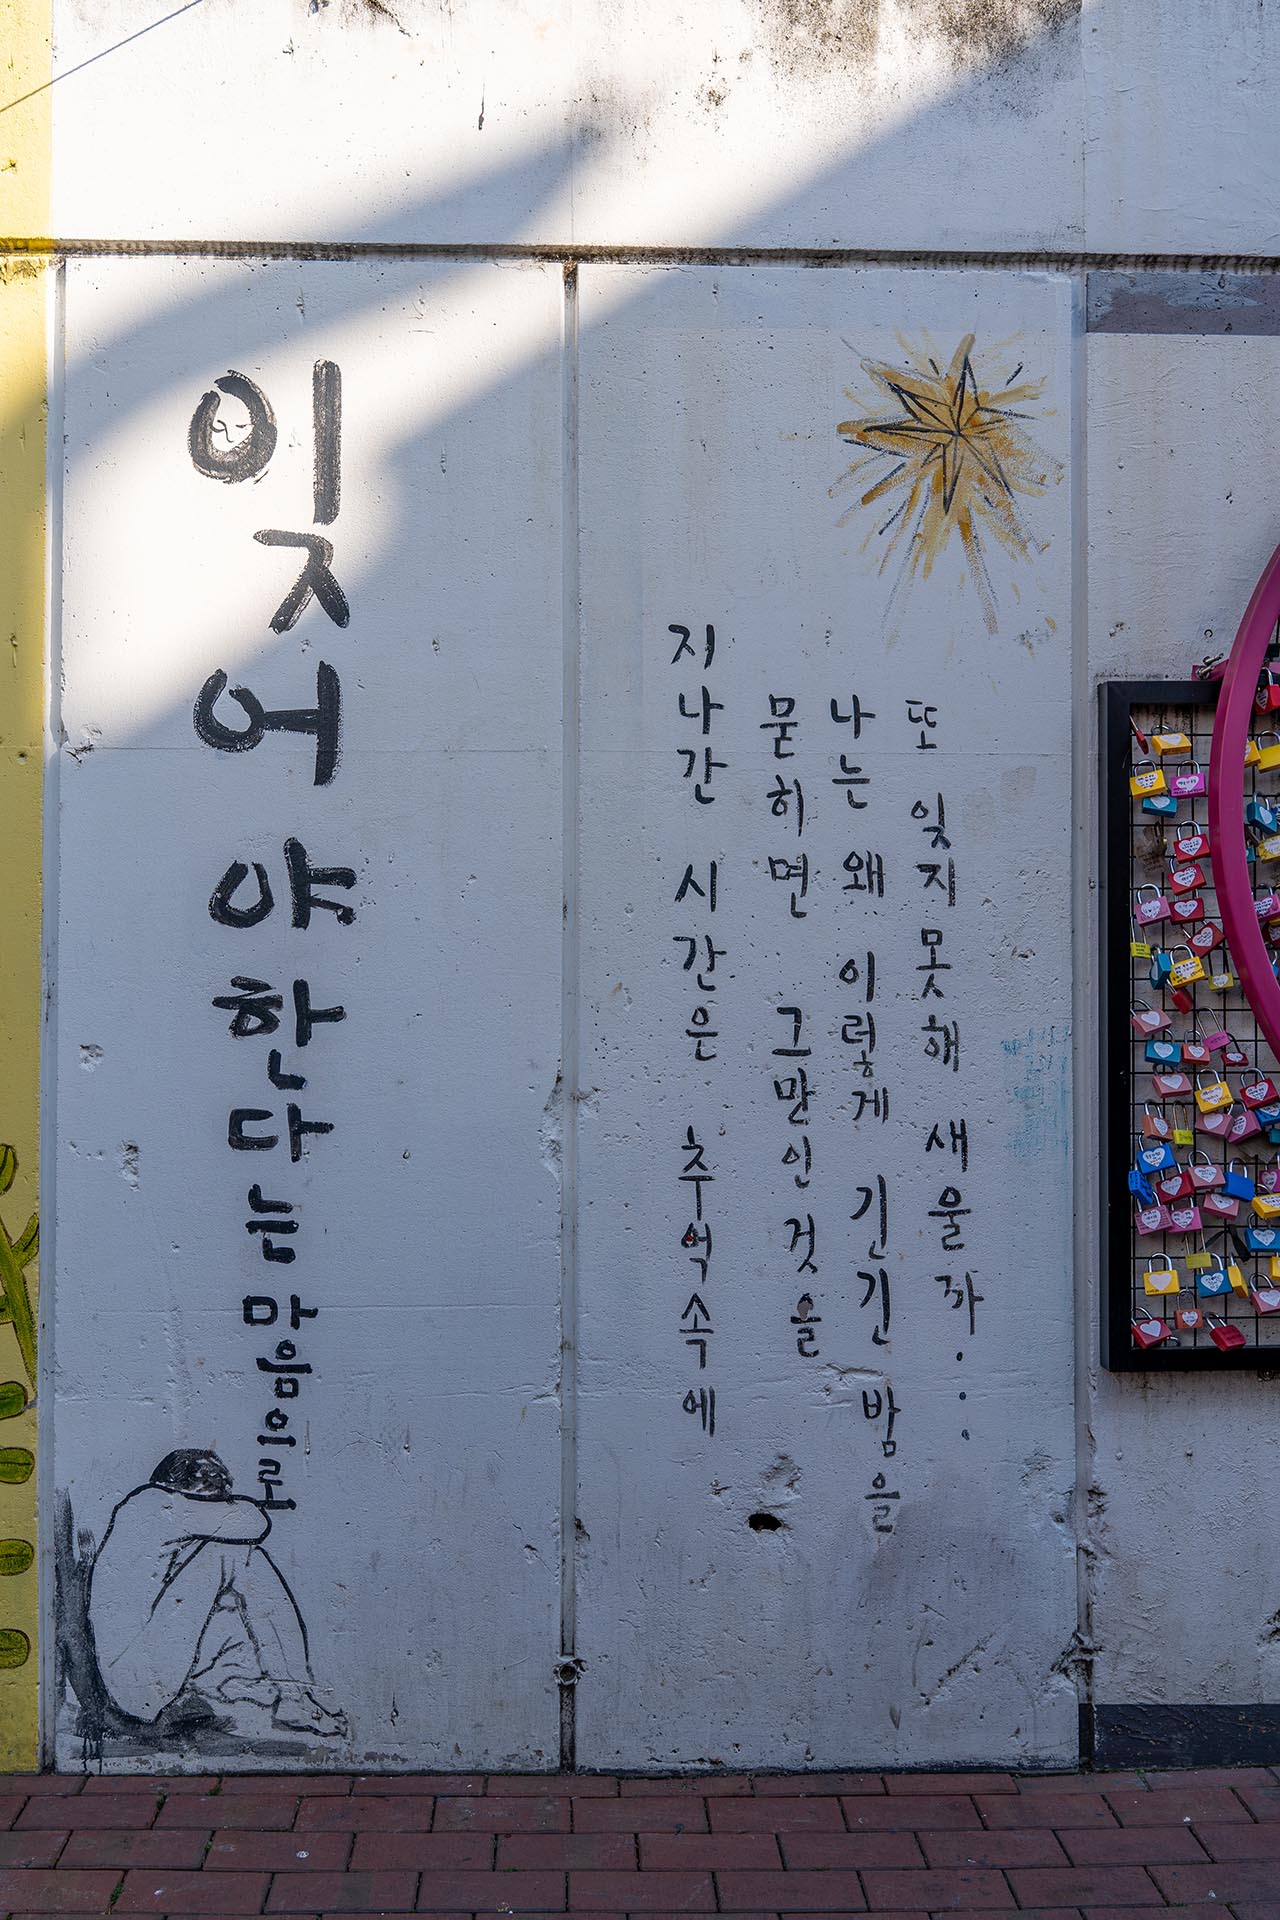 잊어야한다는 마음으로
지나간 시간은 추억속에
묻히면 그만인것을
나는 왜 이렇게 긴긴 밤을
또 잊지못해 새울까.....